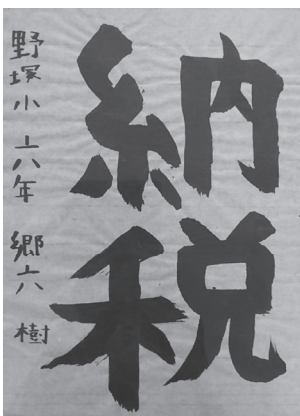 納税
野塚小 六年 郷六 樹